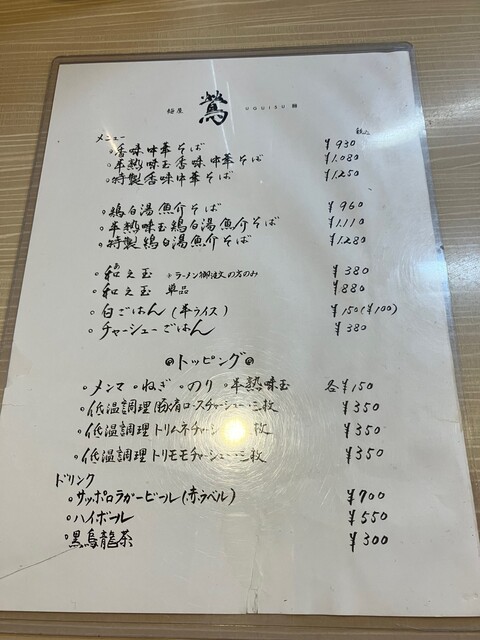 麺屋 鶯 UGUISU 麺
メニュー 税込
香味中華そば ¥930
半熟味玉香味中華そば ¥1,080
特製香味中華そば ¥1,250
鶏白湯魚介そば ¥960
半熟味玉鶏白湯魚介そば ¥1,110
特製鶏白湯魚介そば ¥1,280
和え玉 ラーメン御注文の方のみ ¥380
和え玉 単品 ¥880
白ごはん (半ライス) ¥150(¥100)
チャーシューごはん ¥380
トッピング
メンマ ねぎ のり 半熟味玉 各¥150
低温調理豚肩ロースチャーシュー三枚 ¥350
低温調理トリムネチャーシュー 枚 ¥350
低温調理トリモモチャーシュー三枚 ¥350
ドリンク
サッポロラガービール(赤ラベル) ¥700
ハイボール ¥550
黒烏龍茶 ¥300